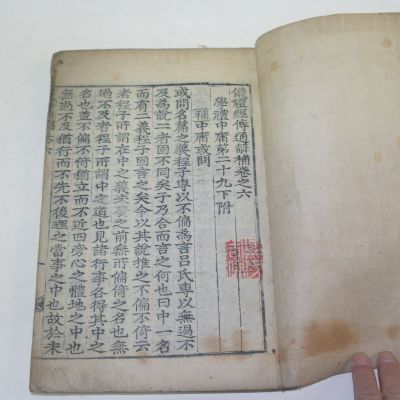 儀禮經傳通解補卷之六
學禮中庸第二十九下附
補中庸或問
或問名篇之義程子專以不偏為言呂氏專以無過不
及為說二者固不同矣子乃合而言之何也曰中一名
而有二義程子固言之矣今以其說推之不偏不倚云
者程子所謂在中之義未發之前無所偏倚之名也無
過不及者程子所謂中之道也見諸行事各得其中之
名也蓋不偏不倚猶立而不近四旁心之體地之中也
無過不及猶行而不先不後理之當事之中也故於未